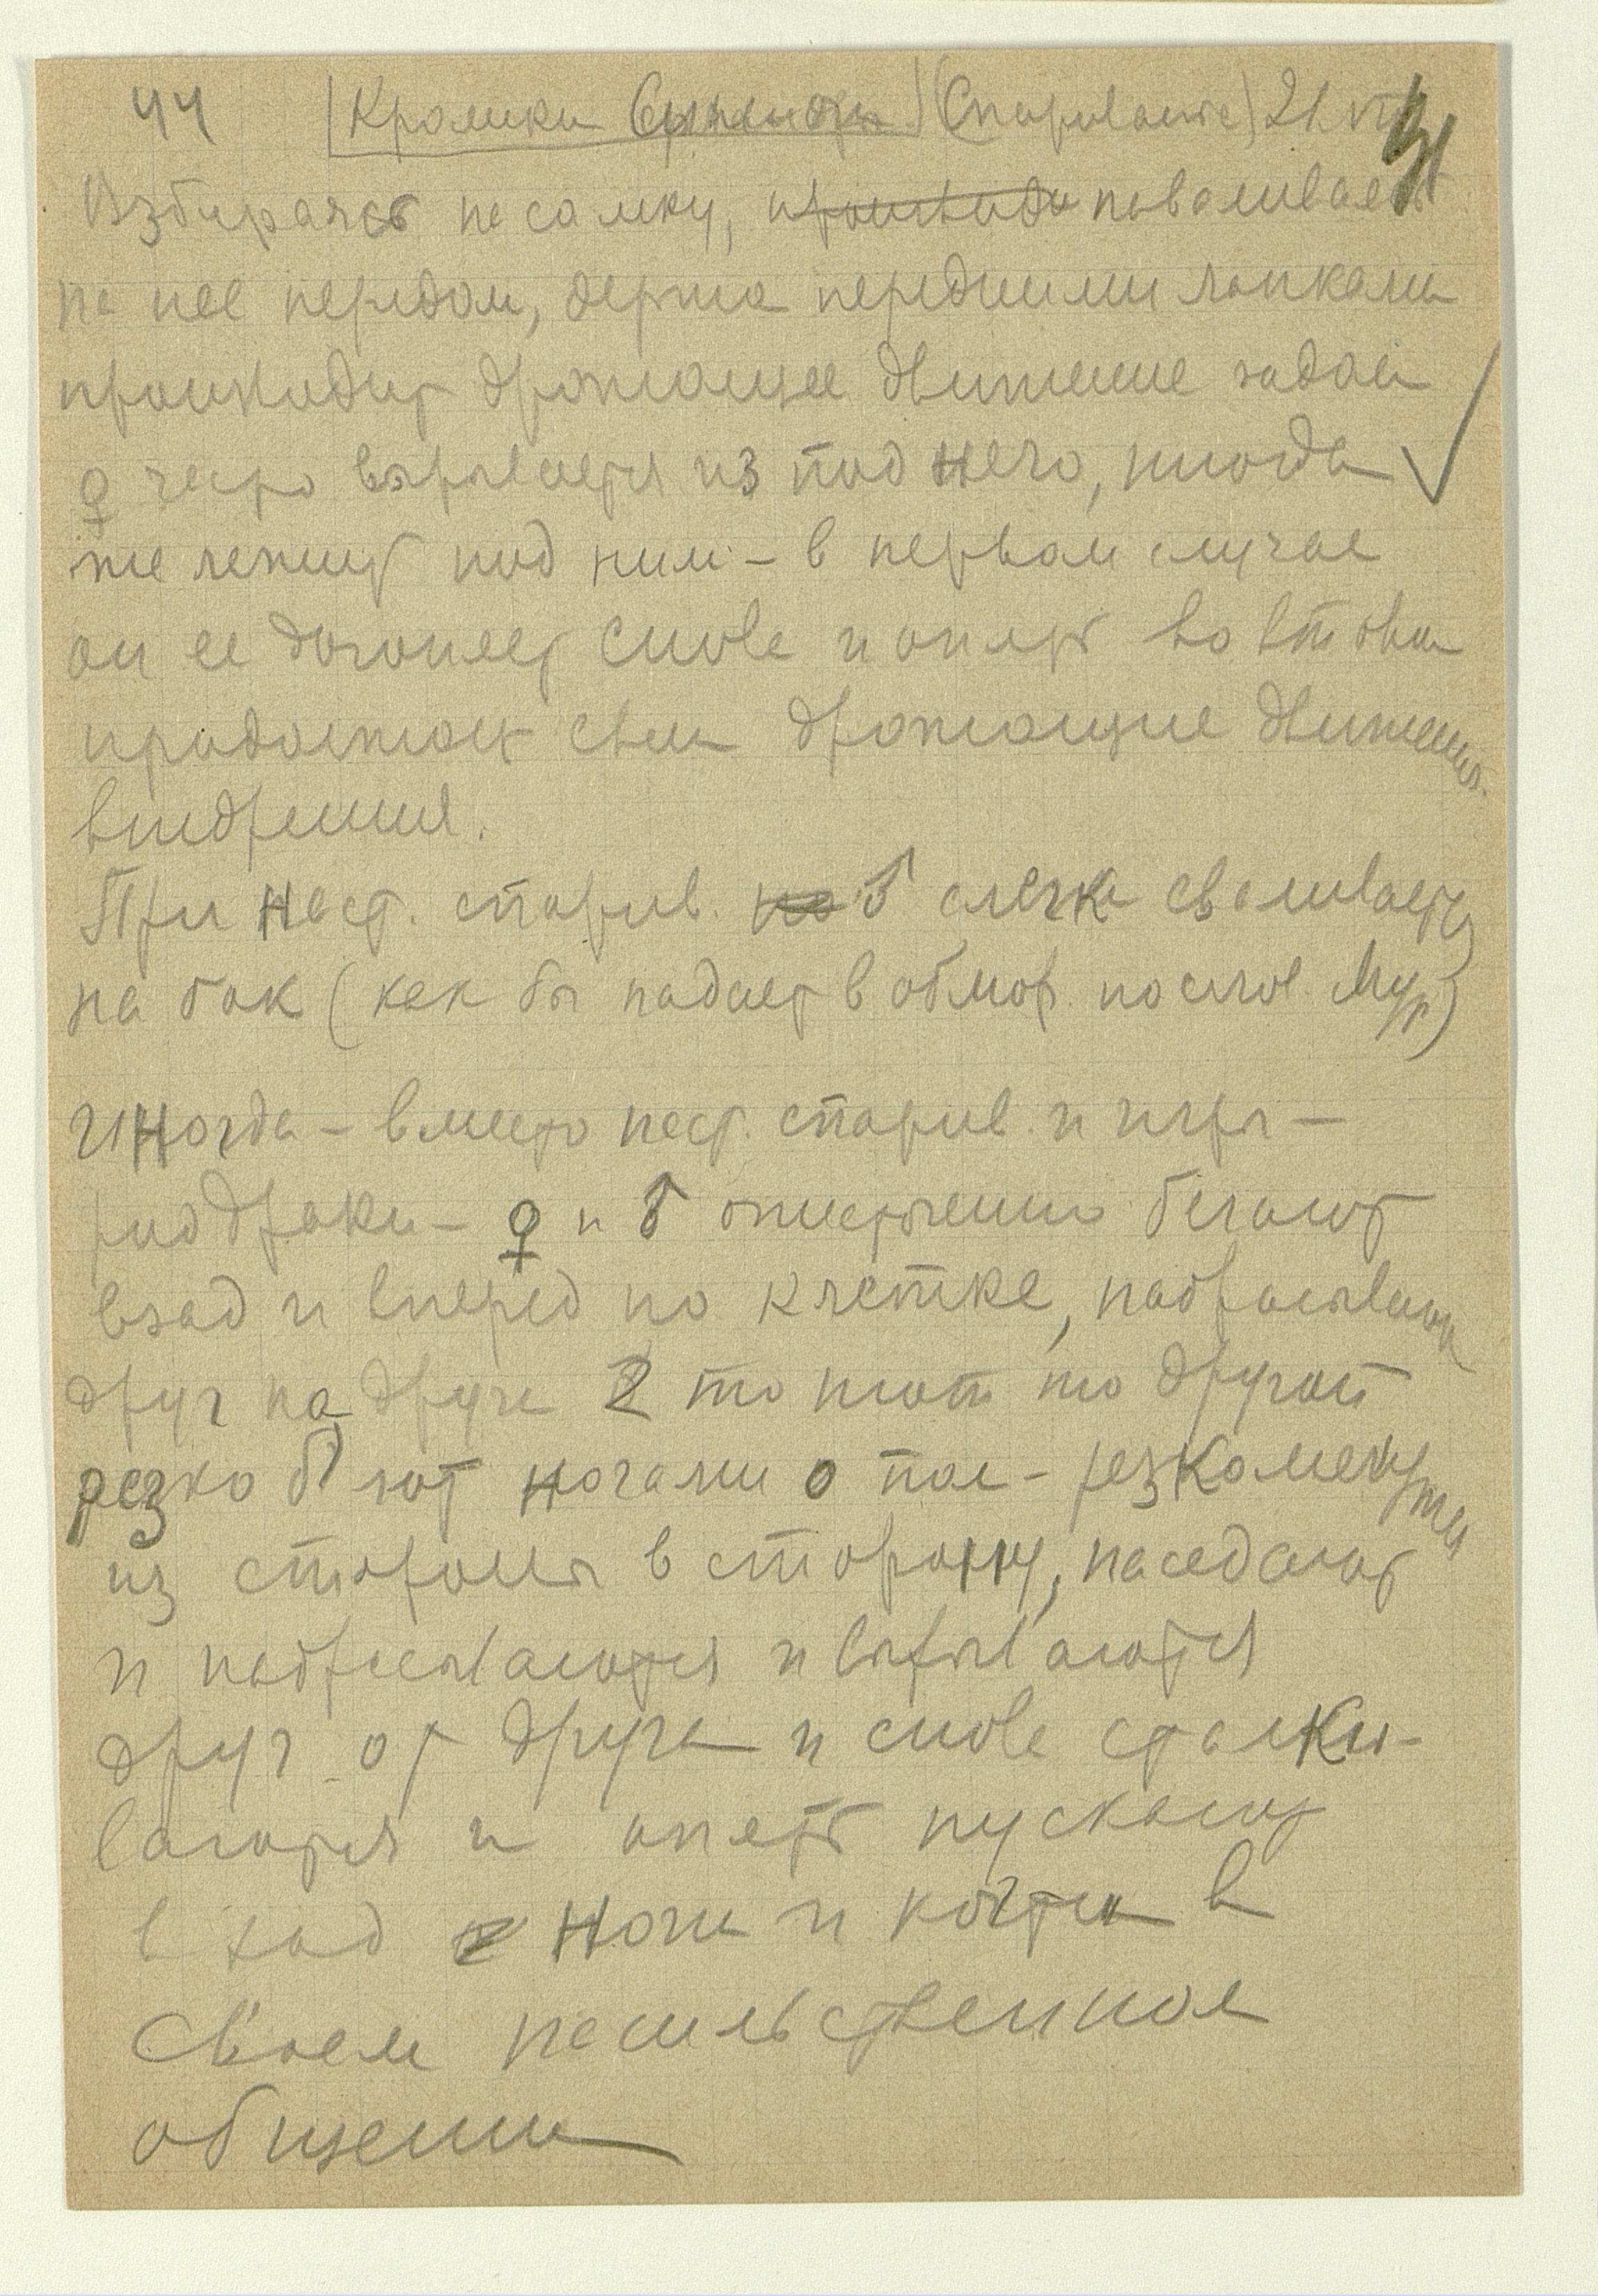 44 Кролики (Спаривание) 21. VII
Взбираясь на самку, наваливает
на нее передом, держа передними лапками
происходит дрожащее движение задом
♀ часто вырывается из под него, иногда
же лежит под ним – в первом случае
он ее догоняет снова и опять
продолжает свои дрожащие движения
внедрения.
При наст. спарив. ♂ слегка сваливается
на бок (как бы падает в обмор. по слов. Мур)
Иногда – вместо наст. спарив. и игры –
род драки – ♀ и ♂ ожесточенно бегают
взад и вперед по клетке, набрасываясь
друг на друга 2 то тот то другой
резко бьют ногами о пол – резко мечутся
из стороны в сторону, наседают
и набрасываются и вырываются
друг от друга и снова сталки-
ваются и опять пускают
в ход ноги и когти в
своем насильственном
общении